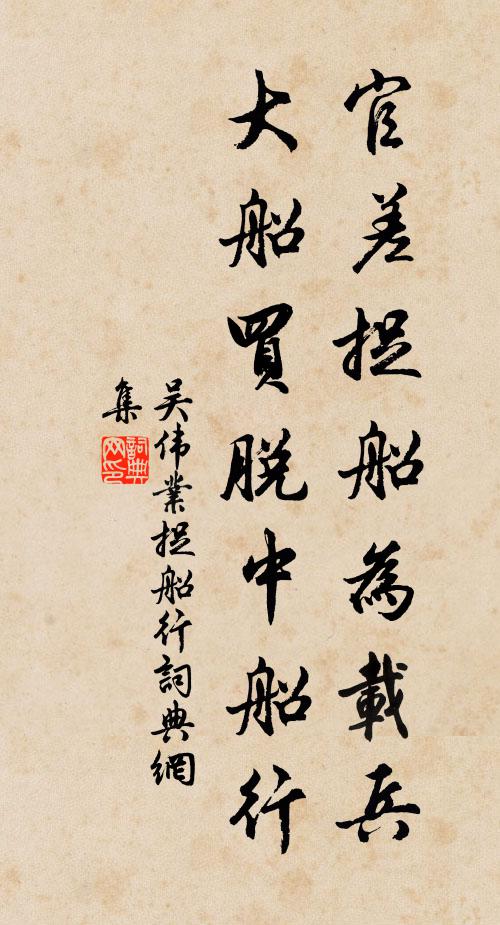 官差捉船為載兵
大船買脫中船行
吴伟業捉船行詞典網
集
詞典
网印